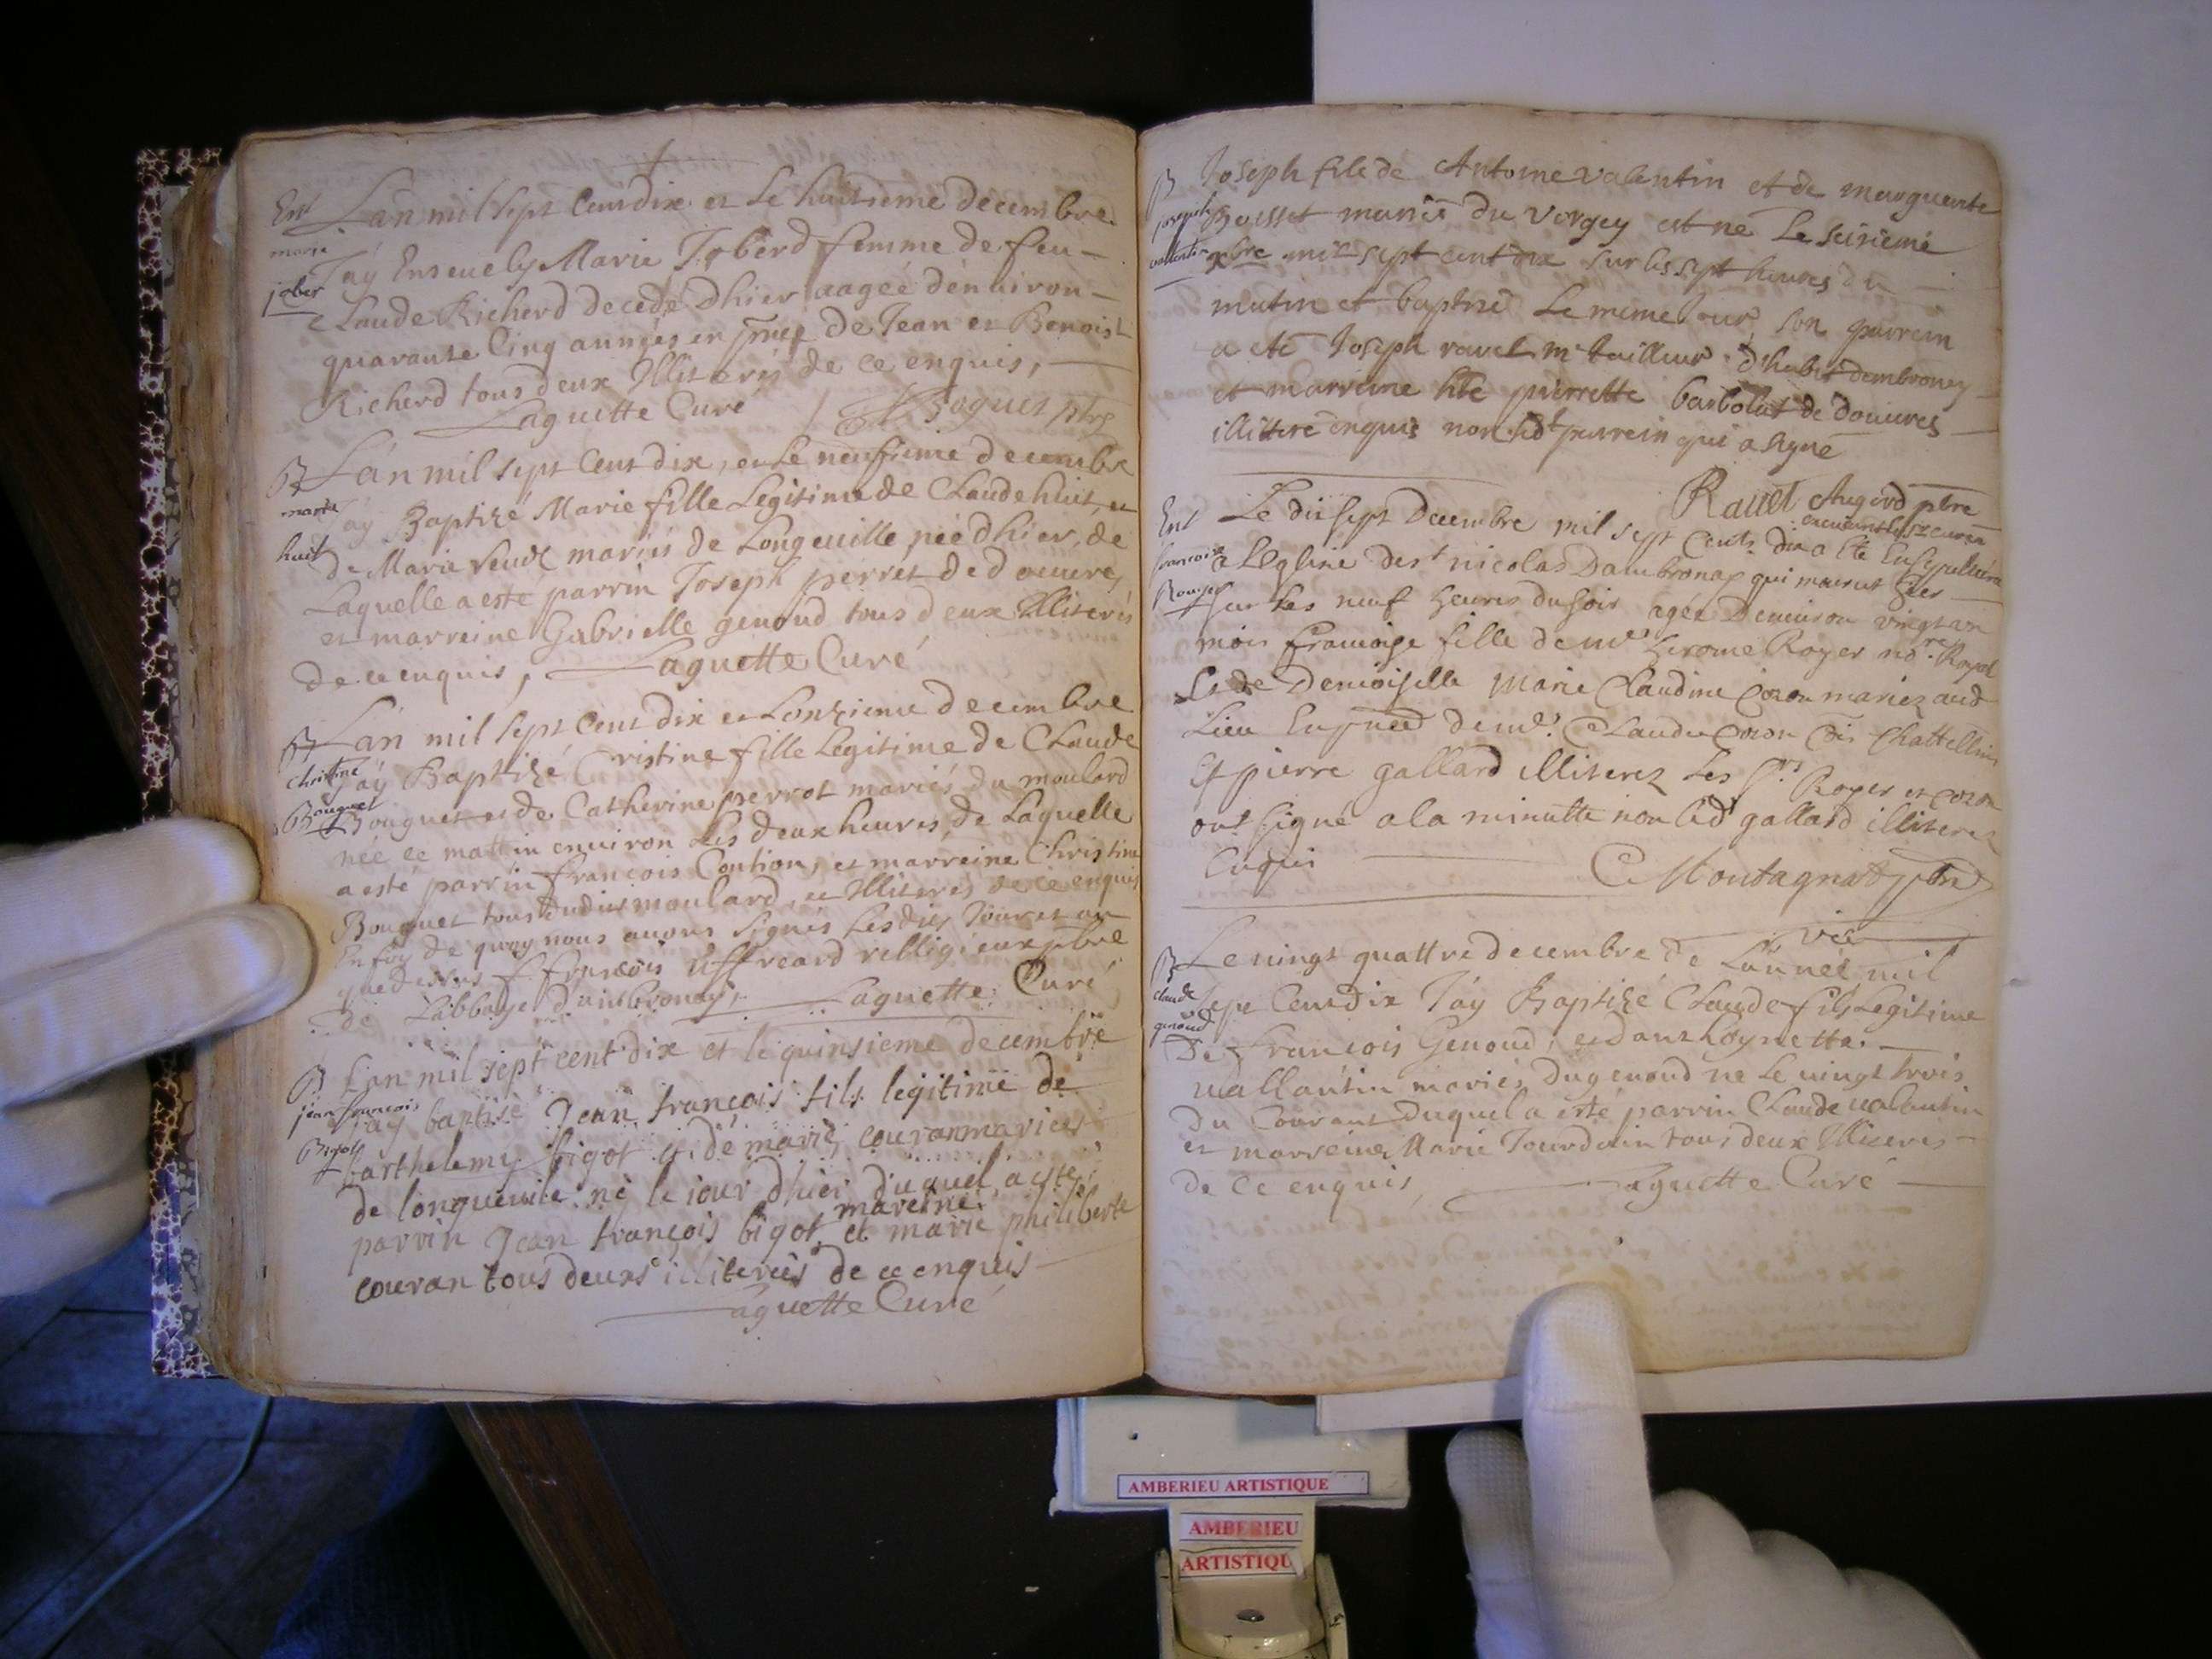 Ent
marie
jober
Lan mil sept Cent dix et le huitieme decembre
Jay Enseuely Marie Joberd femme de feu
Claude Richerd decede Dhier aagée d'enuiron
quarante Cinq années en pnce de Jean et Benoist
Richerd tous deux Illiterés de ce enquis,
Laguette Curé / Boguet ptre
B
marie
huit
Lan mil sept Cent dix, et le neufieme decembre
Jay Baptizé Marie fille Legitime de Claude huit, et
de Marie mariés de Longeuille née dhier, de
Laquelle a esté parrin Joseph perret de douure,
et marreine Gabrielle genoud tous deux Illiterés
de ce enquis, Laguette Curé
B
christine
Bouguet
Lan mil sept Cent dix et Lonzieme decembre
Jay Baptizé Cristine fille Legitime de Claude
Bouguet et de Catherine perrot mariés du moulard
née ce mattin enuiron les deux heures, de Laquelle
a esté parrin françois Contion, et marreine Christine
Bouguet tous dudit moulard, et Illiterés de ce enquis
En foy de quoy nous auons signés les dits Jour et an
que dessus f françois Liffreard relligieux pbre
de Labbaye dambronay, Laguette Curé
B
jean françois
Bigot
Lan mil sept cent dix et le quinsieme decembre
jay baptisé Jean françois fils legitime de
barthelemy bigot et de marie couran mariés
de longueuile né le iour dhier duquel a esté
parrin Jean françois bigot et mareine marie philiberte
couran tous deuxs illiterés de ce enquis
Laguette Curé
B
joseph
vallentin
Joseph fils de Antoine valentin et de marguerite
Boisset mariés du Vorgey est né Le seisieme
xbre mil sept cent dix sur les sept heures du
matin et baptisé Le meme Jour, son parrein
a eté Joseph ravet me tailleur d'habit dembronay
et marreine hte pierrette barbolat de douures
illitteré enquis non ledt parrein qui a signé
Rauet Augerd pbre
Ent
francoise
Rouyer
Le dix sept Decembre mil sept Cents dix a Eté Ensepulturé
a LEglise de st nicolas Dambronay qui mourut hier
sur les neuf heures du soir agée Denuiron vingt un
mois francoise fille de mr hierome Royer nore Royal
Et de Demoiselle Marie Claudine Cozon mariez aud
Lieu En pnce de mr Claude Cozon Chattellin
Et pierre gallard illiterez Les Srs Royer et cozon
ont signé a la minutte non led gallard illiterez
Enquis C Montagnat ptre
vic
B
claude
genoud
Le vingt quattre decembre de Lannée mil
sept Cent dix Jay Baptizé Claude fils Legitime
de francois Genoud, et danthoynette
vallantin mariés du genoud né le uingt trois
du Courant duquel a esté parrin Claude valantin
et marreine Marie Jourdain tous deux Illiterés
de ce enquis, Laguette Curé
AMBERIEU ARTISTIQUE
AMBERIEU
ARTISTIQU